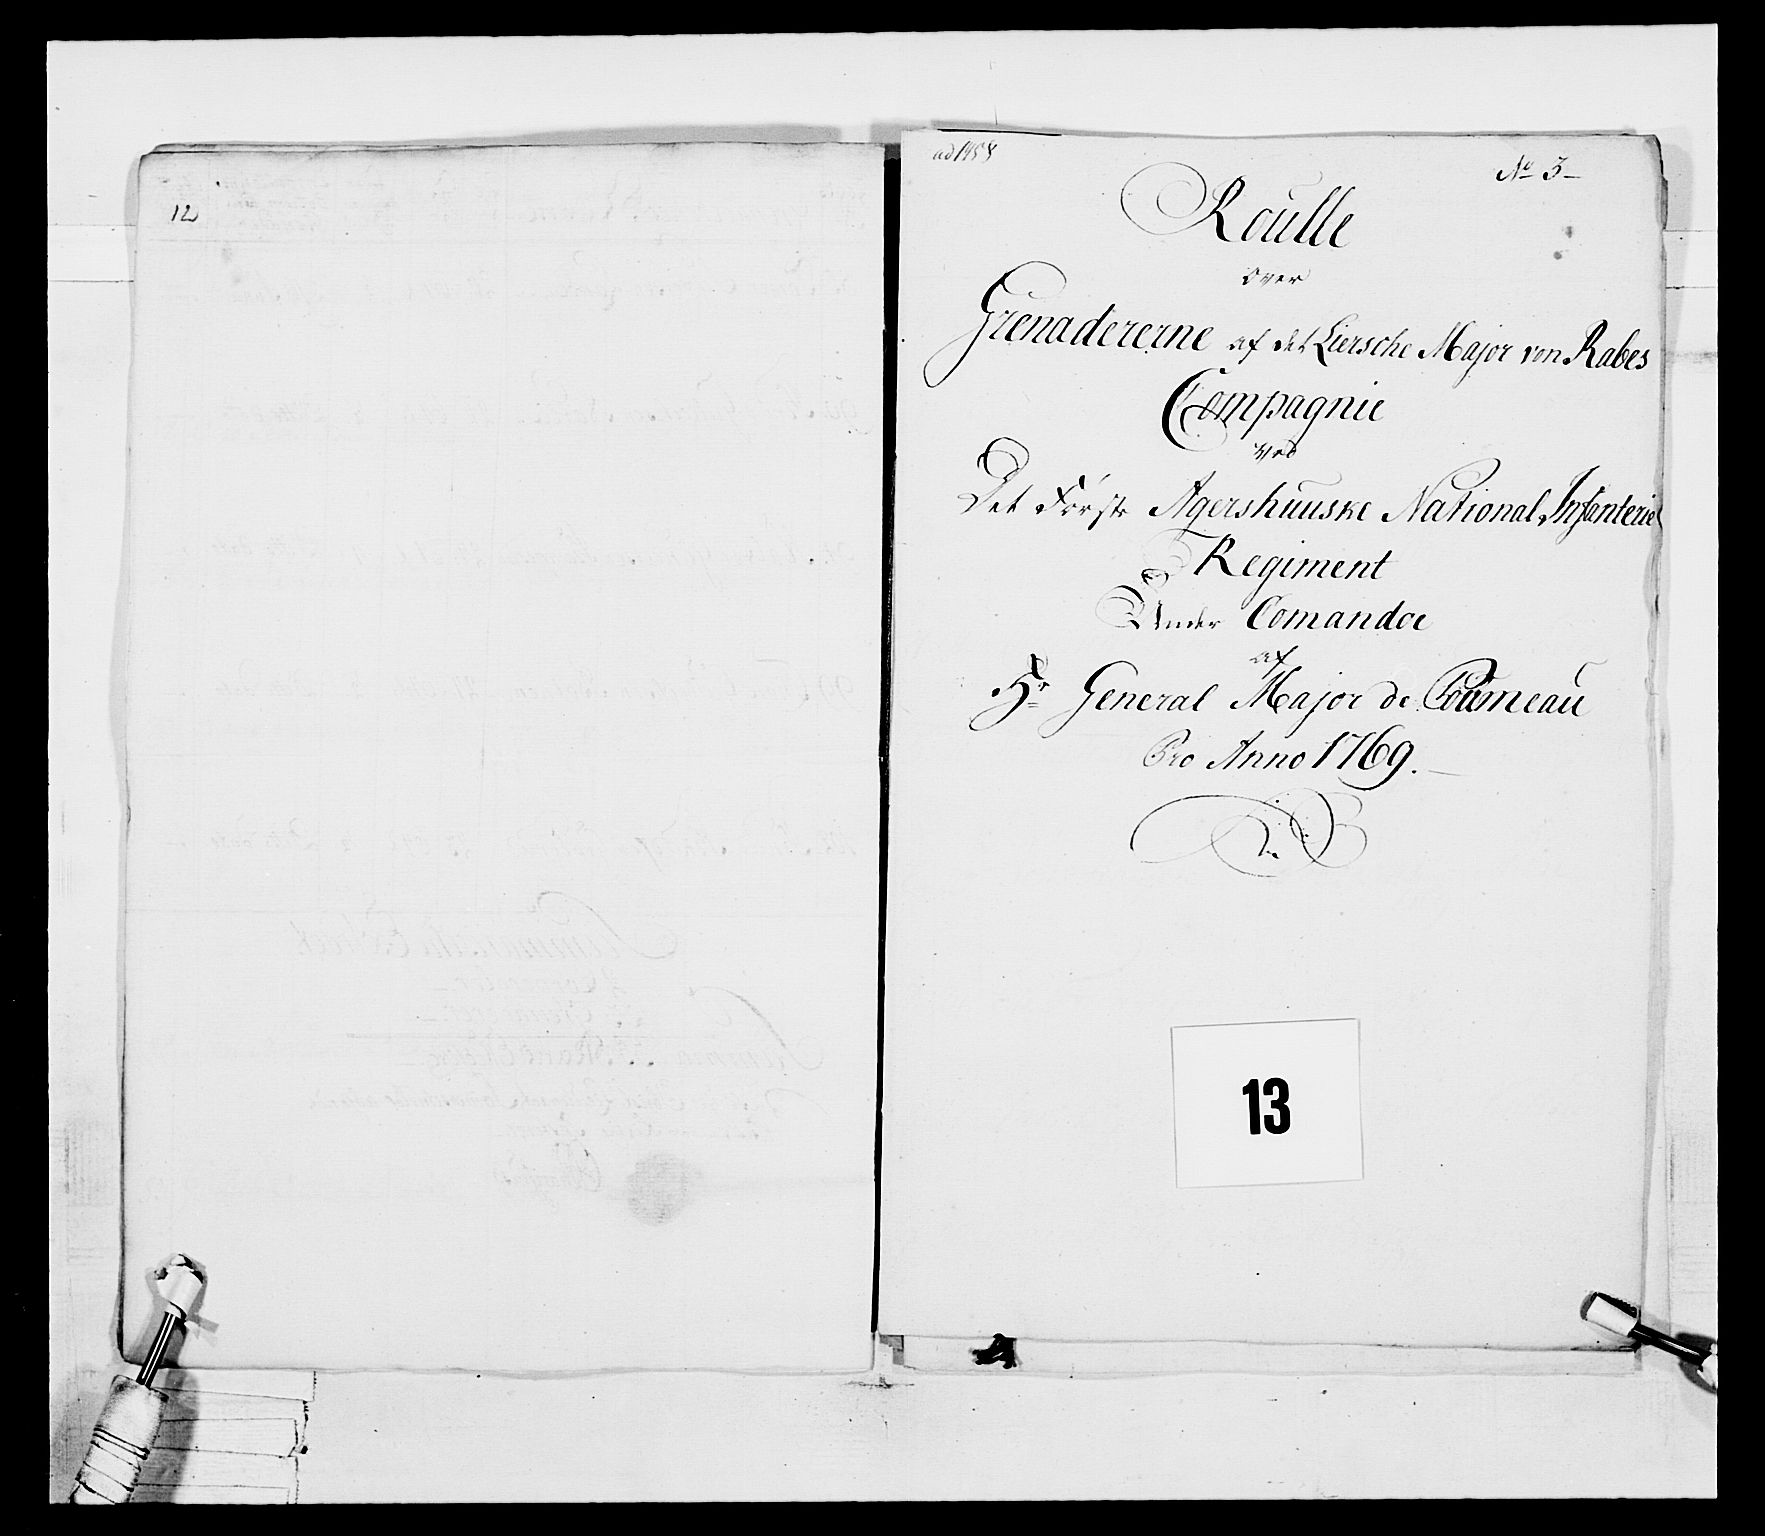 12
ad 1458
No 3
Roulle
over
Grenadererne af det Liersche Major von Rabes
Compagnie
ved
Det Første Agershuuske National Infanterie
Regiment
Under Comandoe
af
Hr General Major de Coumeau
Pro Anno 1769.
13